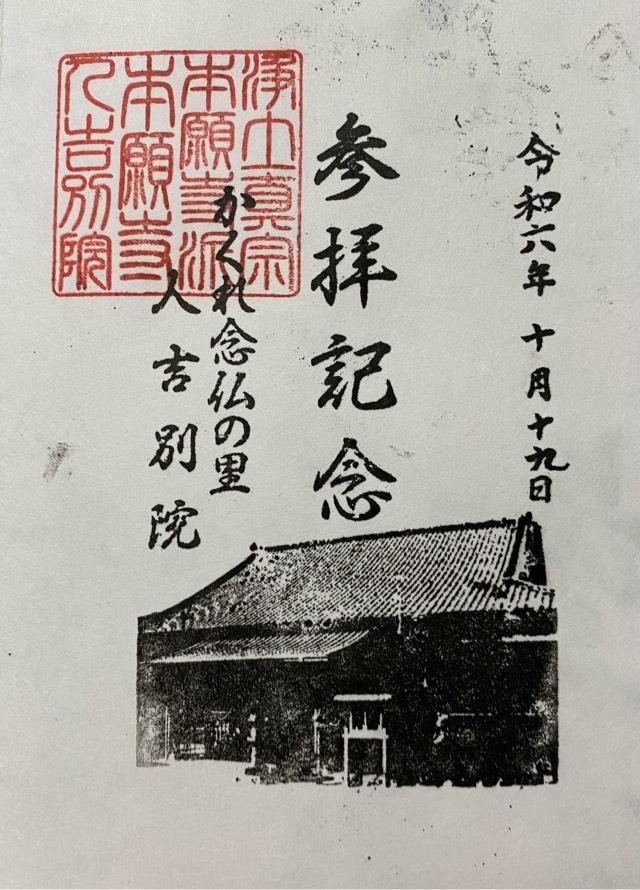 令和六年 十月十九日
参拝記念
かくれ念仏の里
人吉別院
浄土真宗
本願寺派
本願寺
人吉別院